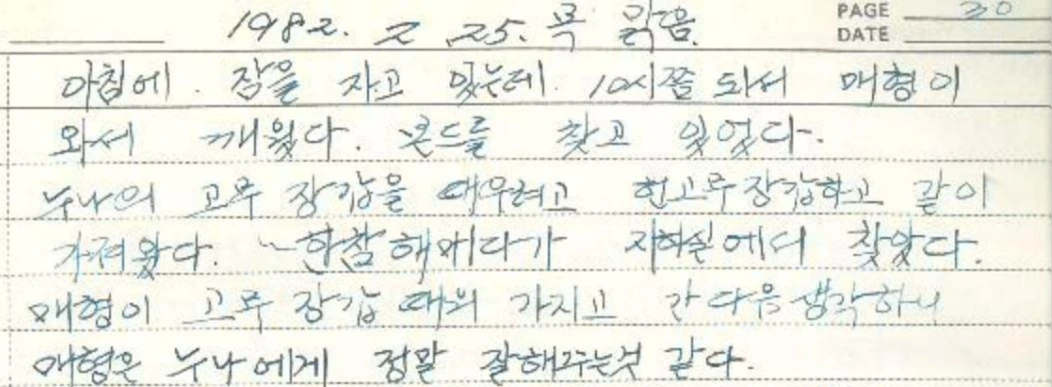 PAGE 30
DATE
1982. 2. 25. 목 맑음.
아침에. 잠을 자고 있는데. 10시쯤 되서 매형이
와서 깨웠다. 본드를 찾고 있었다.
누나의 고무 장갑을 때우려고 헌고무장갑하고 같이
가져왔다. 한참해메다가 지하실에서 찾았다.
매형이 고무 장갑 때워 가지고 간 다음 생각하니
매형은 누나에게 정말 잘해주는것 같다.